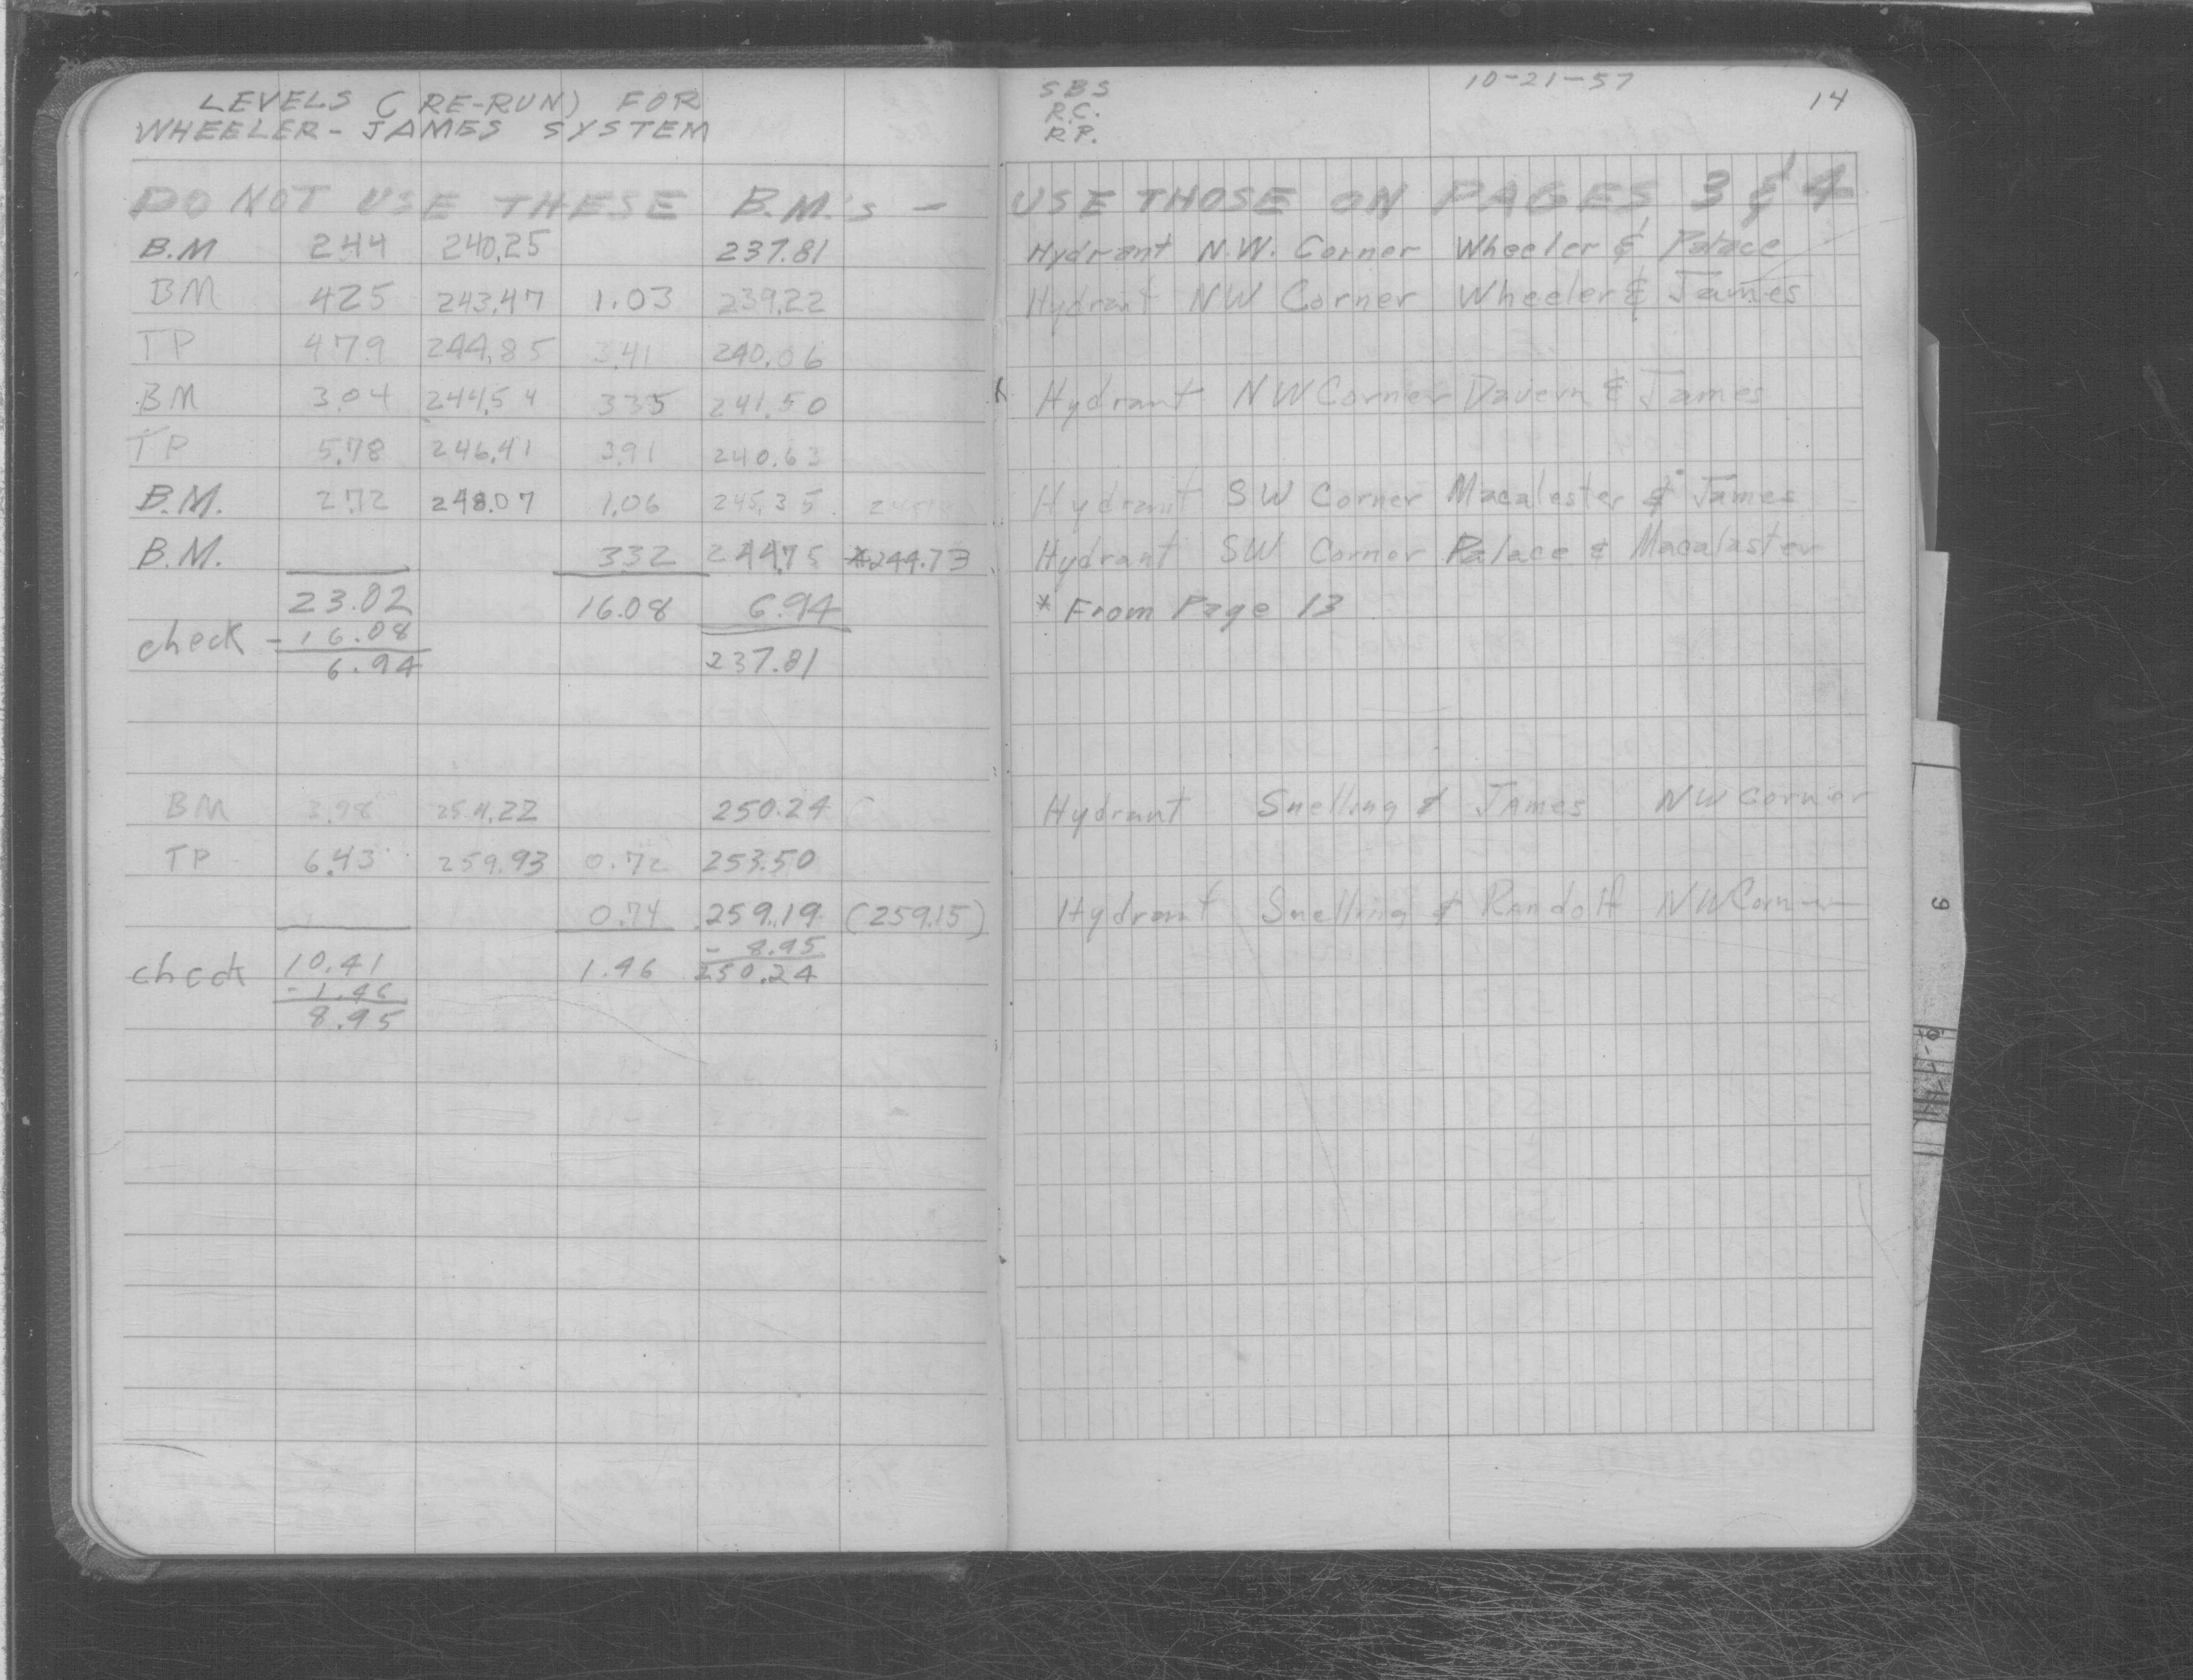 LEVELS (RE-RUN) FOR
WHEELER-JAMES SYSTEM
SBS
R.C.
R.P.
10-21-57
14
DO NOT USE THESE B.M.'s - USE THOSE ON PAGES 3 & 4
B.M 2.44 240.25 237.81 Hydrant N.W. Corner Wheeler & Palace
BM 4.25 243.47 1.03 239.22 Hydrant NW Corner Wheeler & James
TP 4.79 244.85 3.41 240.06
BM 3.04 244.54 3.35 241.50 Hydrant NW Corner Davern & James
TP 5.78 246.41 3.91 240.63
B.M. 2.72 248.07 1.06 245.35 Hydrant SW Corner Macalester & James
B.M. 3.32 244.75 *244.73 Hydrant SW Corner Palace & Macalaster
23.02 16.08 6.94 * From Page 13
check - 16.08 237.81
6.94
BM 3.98 254.22 250.24 Hydrant Snelling & James NW Corner
TP 6.43 259.93 0.72 253.50
0.74 259.19 (259.15) Hydrant Snelling & Randolf NW Corner
- 8.95
check 10.41 1.46 250.24
- 1.46
8.95
9